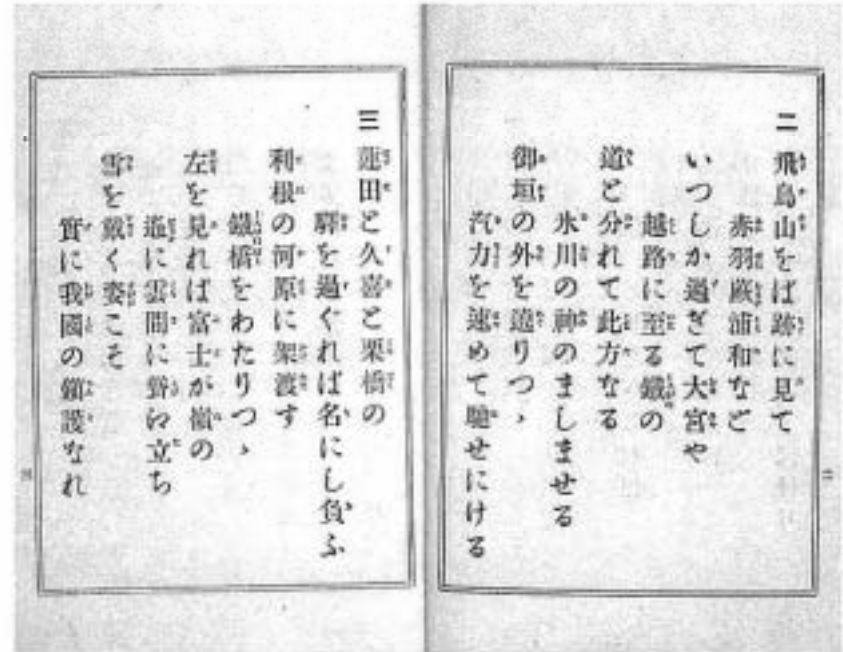 二 飛鳥山をば跡に見て
赤羽蕨浦和など
いつしか過ぎて大宮や
越路に至る鐵の
道と分れて此方なる
氷川の神のましませる
御垣の外を遶りつゝ
汽力を速めて馳せにける
三 蓮田と久喜と栗橋の
驛を過ぐれば名にし負ふ
利根の河原に架渡す
鐵橋をわたりつゝ
左を見れば富士が嶺の
遙に雲間に聳え立ち
雪を戴く姿こそ
實に我國の鎭護なれ